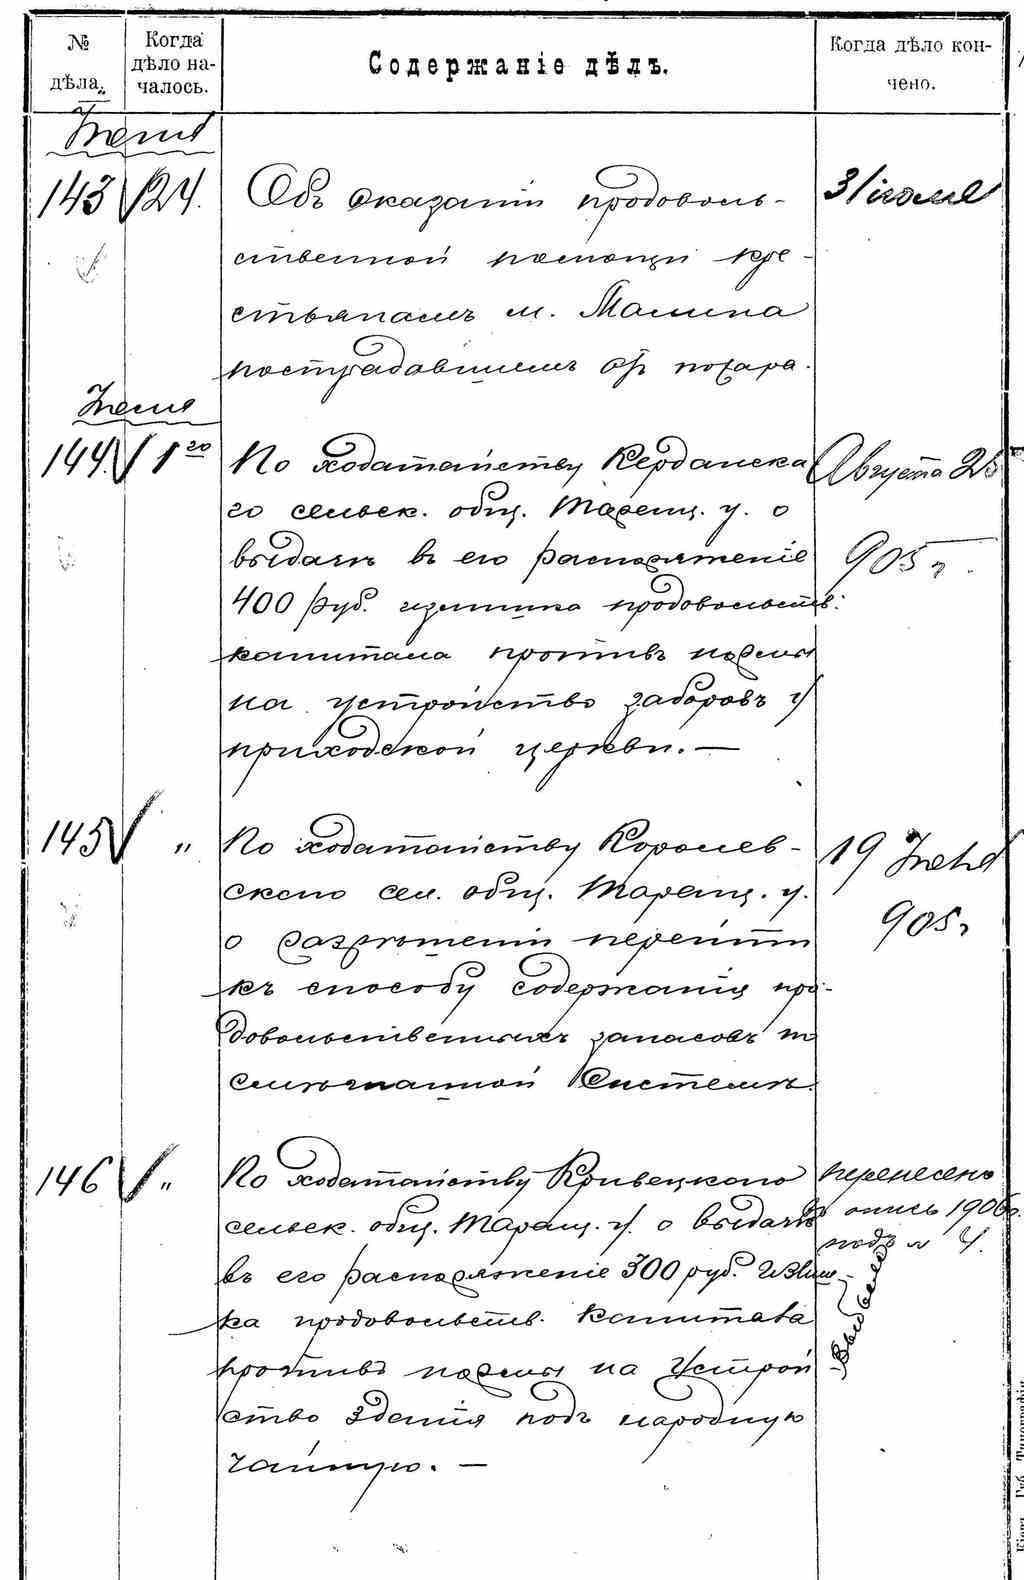 № дѣла
Когда дѣло на-
чалось.
Содержаніе дѣлъ.
Когда дѣло кон-
чено.
143 24.
Объ оказаніи продоволь-
ственной помощи кре-
стьянамъ м. Малина
пострадавшимъ отъ пожара.
31 іюля
Іюня
144. 1го
По ходатайству Керданска
го сельск. общ. Таращ. у. о
выдачѣ въ его распоряженіе
400 руб. излишка продовольств.
капитала противъ нормы
на устройство заборовъ у
приходской церкви. —
Августа 25
905 г.
145 „
По ходатайству Королев-
скаго сел. общ. Таращ. у.
о разрѣшеніи перейти
къ способу содержанія про-
довольственныхъ запасовъ по
смѣшанной системѣ.
19 Іюня
905 г
146 „
По ходатайству Кривецкаго
сельск. общ. Таращ. у. о выдачѣ
въ его распоряженіе 300 руб. излиш-
ка продовольств. капитала
противъ нормы на устрой
ство зданія подъ народную
чайную. —
перенесено
въ опись 1906 г.
подъ № 4.